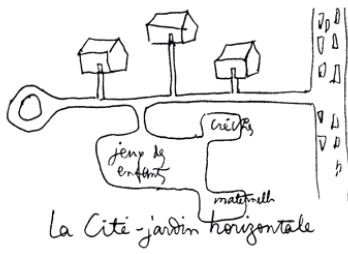 crèches
jeux de
enfants
maternelle
La Cité-jardin horizontale